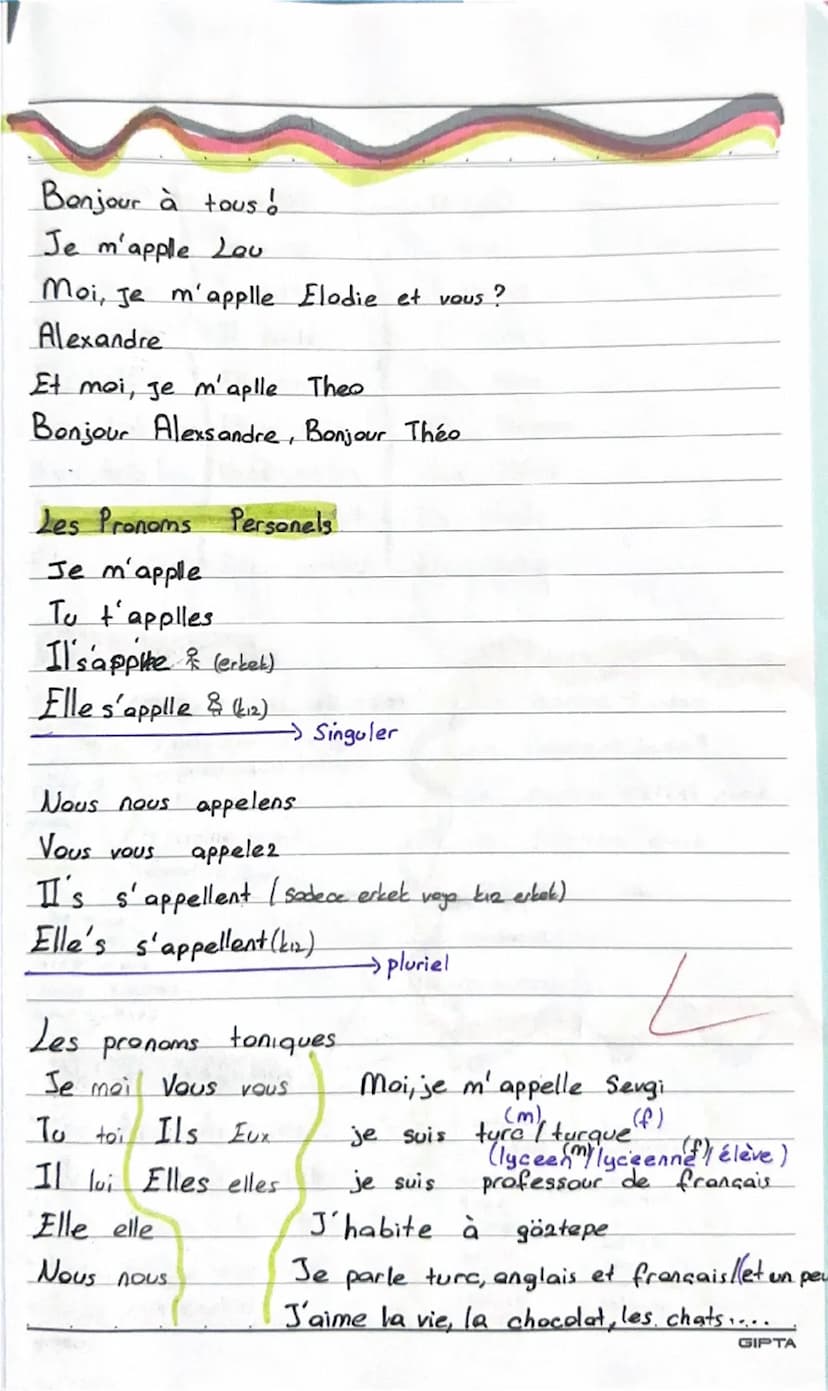 Bonjour à tous!
Je m'apple Lou
Moi, je m'applle Elodie et vous?
Alexandre
Et moi, je m'aplle Theo
Bonjour Alexsandre, Bonjour Théo
Les Pronoms Personels
Je m'apple
Tu t'applles
Il s'applle (erkek)
Elle s'applle (kız)
→ Singuler
Nous nous appelens
Vous vous appelez
Il's s'appellent (sadece erkek veya kız erkek)
Elle's s'appellent (kız)
→ pluriel
Les pronoms toniques
Je moi Vous vous Moi, je m'appelle Sevgi
Tu toi Ils Eux je suis turc (m) / turque (f)
(lyceen (m) / lyceenne (f) / élève)
Il lui Elles elles je suis professour de français
Elle elle J'habite à göztepe
Nous nous Je parle turc, anglais et français // (et un peu
J'aime la vie, la chocolat, les chats.....
GIPTA